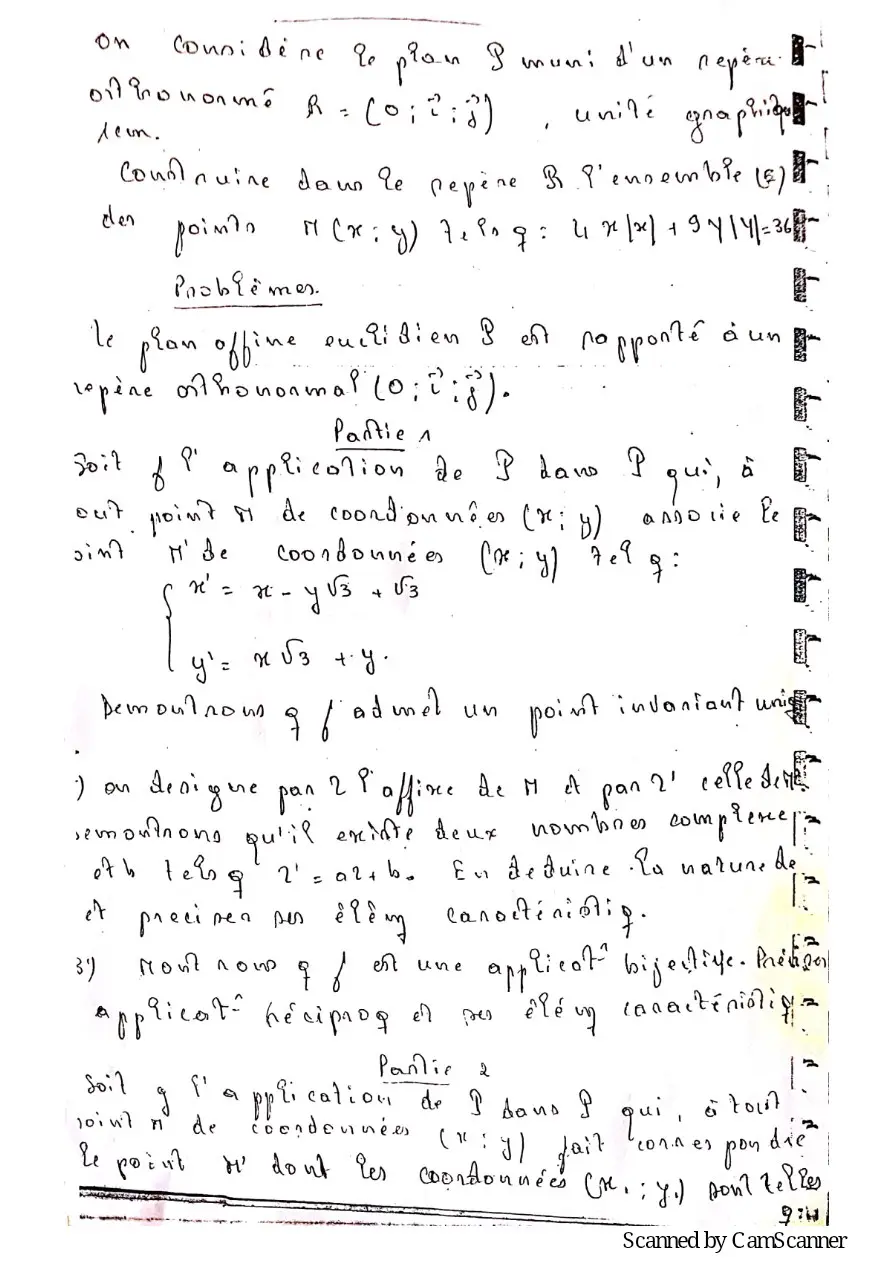 On considère le plan P muni d'un repère
orthonormé R = (O; i⃗; j⃗), unité graphiq
1cm.
Construire dans le repère R l'ensemble (E)
des points M(x; y) tels q : 4x|x| + 9y|y| = 36
Problèmes.
le plan affine euclidien P est rapporté à un
repère orthonormal (O; i⃗; j⃗).
Partie 1
Soit f l'application de P dans P qui, à
out point M de coordonnées (x; y) associe le
oint M' de coordonnées (x; y) tel q :
{ x' = x - y√3 + √3
y' = x√3 + y.
Demontrons q f admet un point invariant uniq
.
) on designe par Z l'affixe de M et par Z' celle de M'
emontrons qu'il existe deux nombres complexe
et b tels q Z' = aZ + b. En deduire la nature de
et preciser ses élém caractéristiq.
3') Montrons q f est une applicat° bijective. Préciser
applicat° réciproq et ses élém caractéristiq
Partie 2
Soit g l'application de P dans P qui, à tout
oint M de coordonnées (x; y) fait correspondre
le point M' dont les coordonnées (x.; y.) sont telles
Scanned by CamScanner